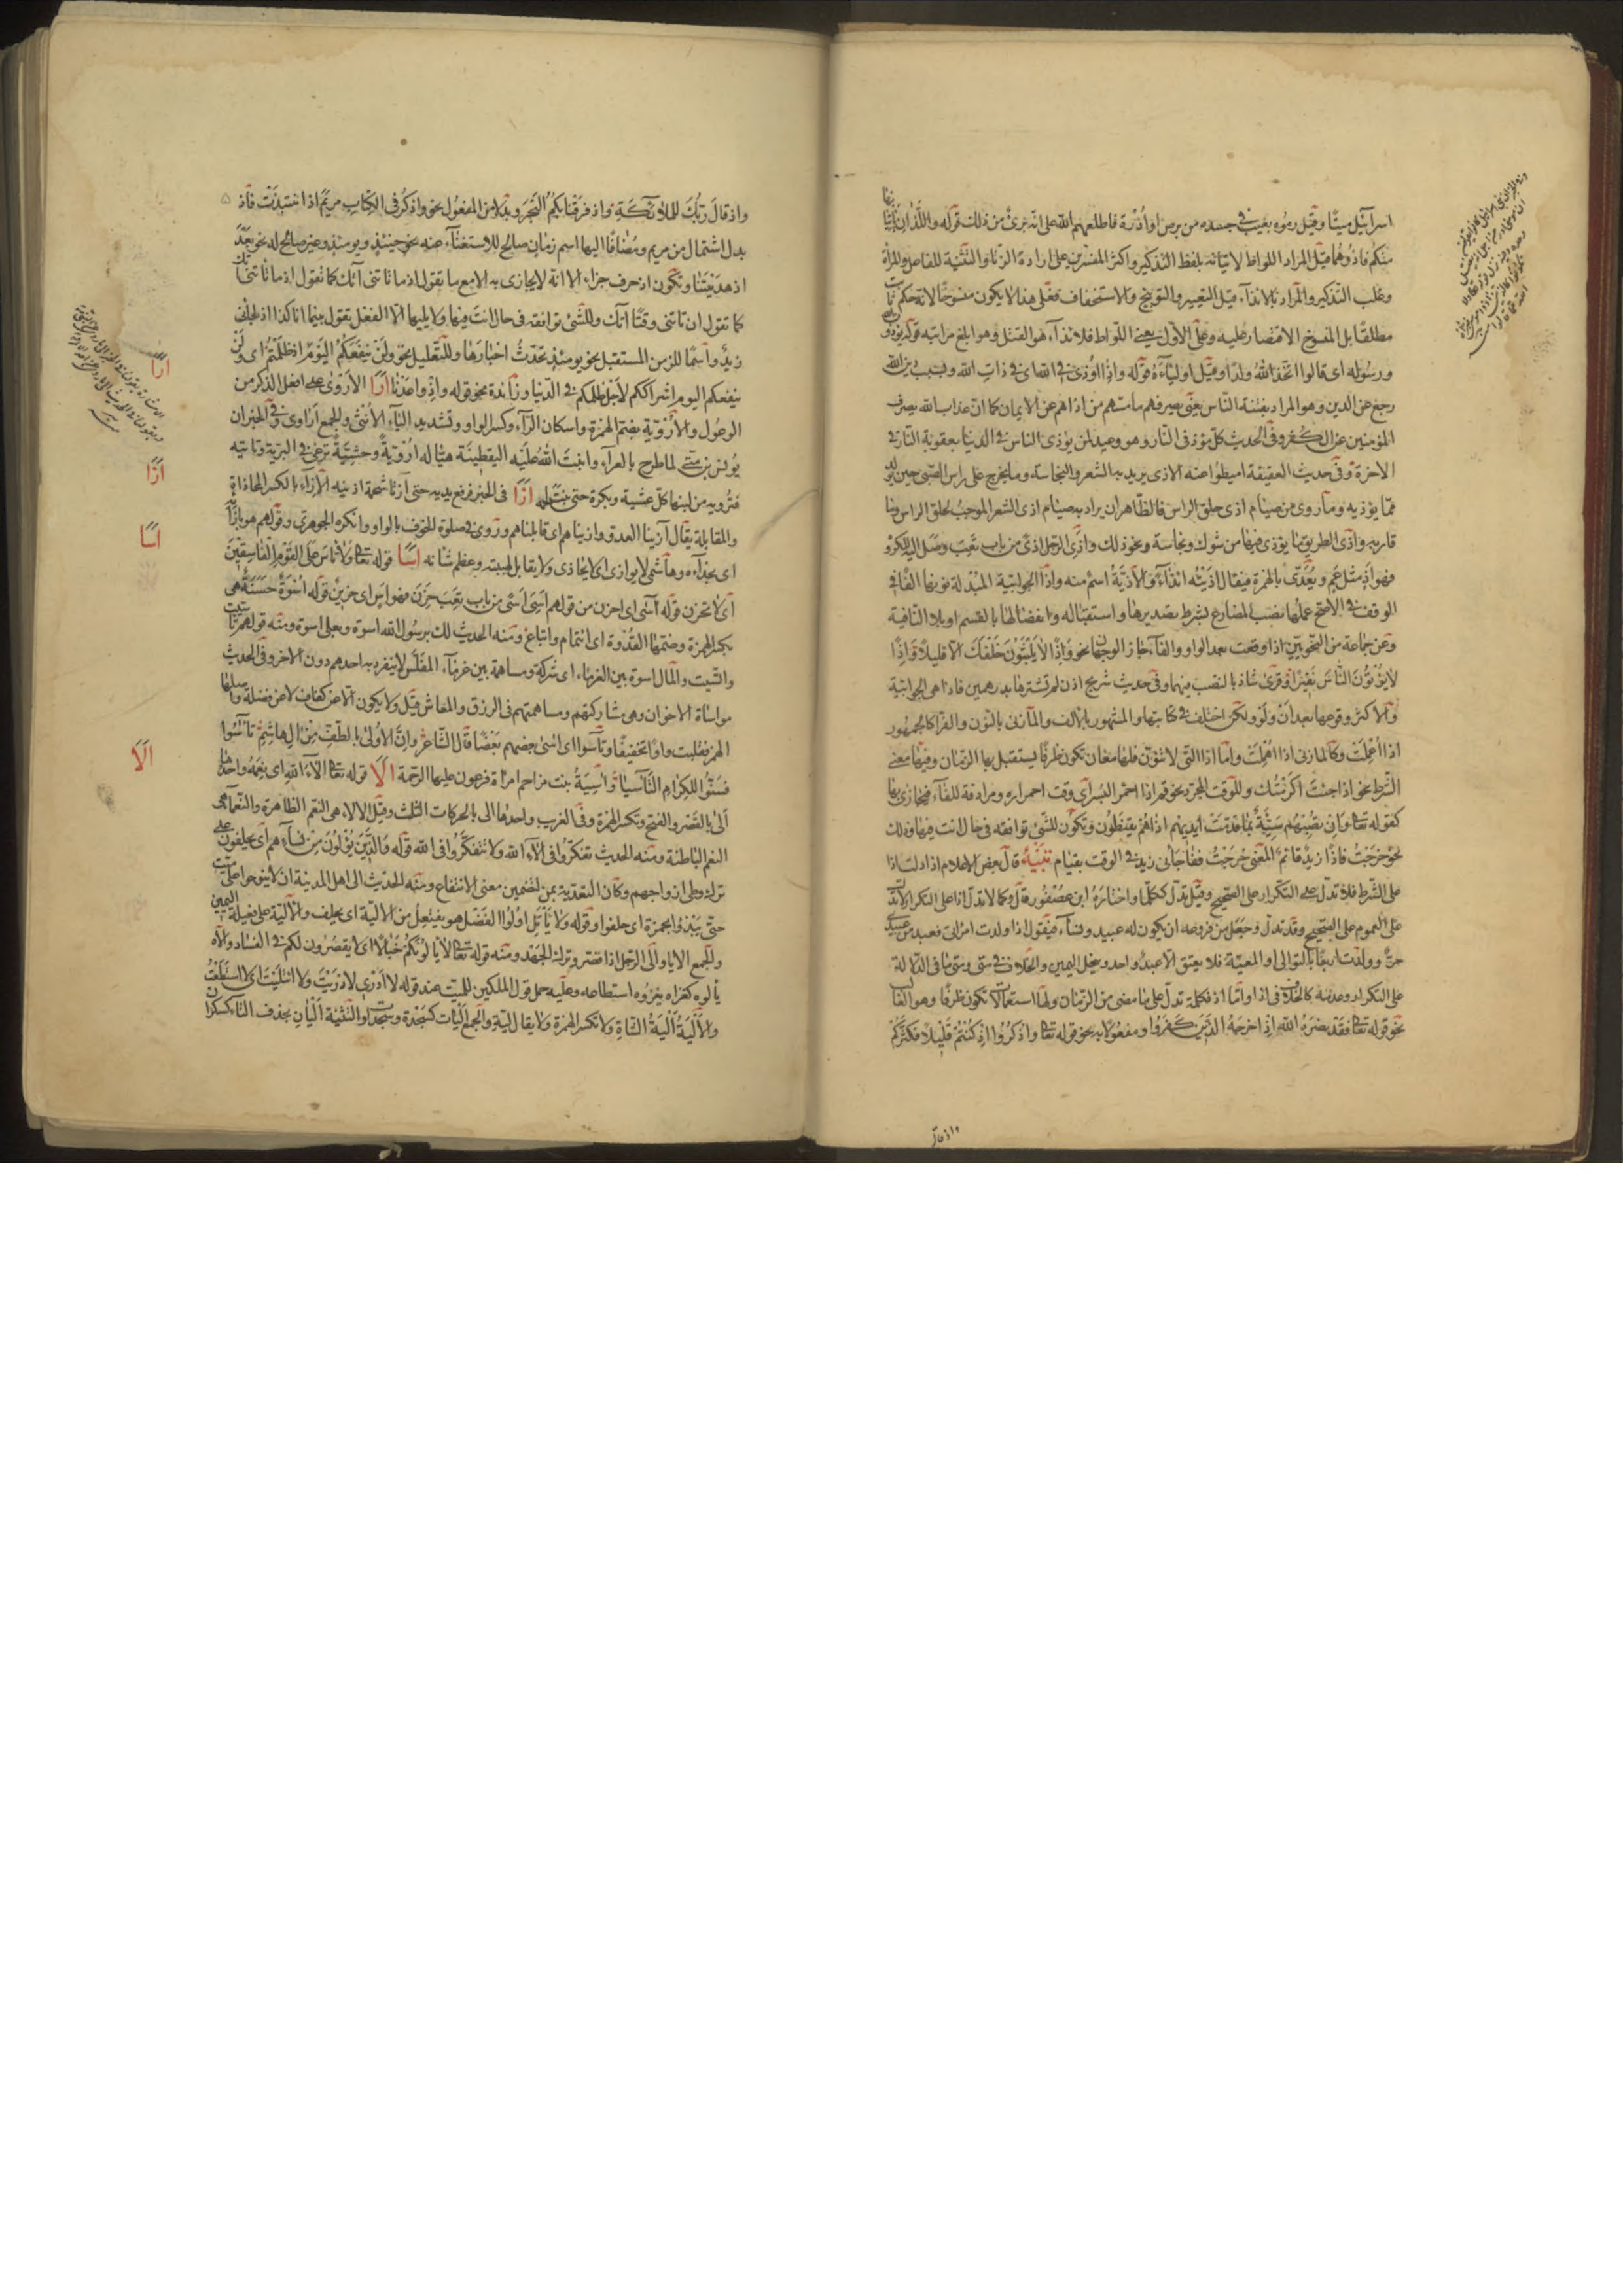 اسرآئيل ميتا وقيل رموه بعيب في جسده من برص او أدرة فاطلعهم الله على انه برئ من ذلك قوله واللذان يأتيانها
منكم فاذوهما قيل المراد اللواط لاتيانه بلفظ التذكير واكثر المفسرين على ارادة الزنا والتثنية للفاعل والمرأة
وغلب التذكير والمراد بالايذآء قيل التعيير والتوبيخ والاستخفاف فعلى هذا لا يكون منسوخا لانه حكم ثابت
مطلقا بل المنسوخ الاقتصار عليه وعلى الاول يعنى اللواط فالايذآء هو القتل وهو ابلغ مراتبه قوله يؤذون الله
ورسوله اى قالوا اتخذ الله ولدا وقيل اوليآءه قوله واذا اوذى في الله اى في ذات الله وبسبب دين الله
رجع عن الدين وهو المراد بفتنة الناس يعنى يصرفهم ما مسهم من اذاهم عن الايمان كما ان عذاب الله يصرف
المؤمنين عن الكفر وفي الحديث كل مؤذ فى النار وهو وعيد لمن يؤذى الناس في الدنيا بعقوبة النار في
الاخرة وفي حديث العقيقة اميطوا عنه الاذى يريد به الشعر والنجاسة وما يخرج على راس الصبى حين يولد
مما يؤذيه وما روى من صيام اذى حلق الراس فالظاهر ان يراد به صيام اذى الشعر الموجب لحلق الراس وما
قاربه واذى الطريق ما يؤذى فيها من شوك ونجاسة ونحو ذلك واذى الرجل اذى من باب تعب وصل اليه المكروه
فهو اذ مثل عم ويعدى بالهمزة فيقال اذيته ايذآء والاذية اسم منه واذا الجوابية المبدلة نونها الفا في
الوقف في الاصح عملها نصب المضارع بشرط تصديرها واستقباله واتصالها بالقسم او بلا النافية
وعن جماعة من النحويين اذا وقعت بعد الواو والفآء جاز الوجهان نحو واذا لا يلبثون خلفك الا قليلا واذا
لا يؤتون الناس نقيرا وقرئ شاذ بالنصب فيهما وفي حديث شريح اذن لم تشترها بدرهمين فاذا هى الجوابية
والاكثر وقوعها بعد ان ولو ولكن اختلف في كتابتها والمشهور بالالف والمازنى بالنون والفرا كالجمهور
اذا اعملت وكالمازنى اذا اهملت واما اذا التى لا تنون فلها معان تكون ظرفا يستقبل بها الزمان وفيها معنى
الشرط نحو اذا جئت اكرمتك وللوقت المجرد نحو قم اذا احمر البسر اى وقت احمراره ومرادفة للفآء فيجازى بها
كقوله تعالى وان تصبهم سيئة بما قدمت ايديهم اذا هم يقنطون وتكون للشئ توافقه في حال انت فيها وذلك
نحو خرجت فاذا زيد قائم المعنى خرجت ففاجأنى زيد في الوقت بقيام تنبيه قال بعض الاعلام اذا دلت اذا
على الشرط فلا تدل على التكرار على الصحيح وقيل تدل ككلما واختاره ابن عصفور قال وكما لا تدل اذا على التكرار لا تدل
على العموم على الصحيح وقد تدل وجعل من فروعه ان يكون له عبيد ونسآء فيقول اذا ولدت امراتى فعبد من عبيدى
حر وولدت اربعا بالتوالى او المعية فلا يعتق الا عبد واحد وينحل اليمين والخلاف في متى ومتى ما في الدلالة
على التكرار وعدمه كالخلاف فى اذا واما اذ فكلمة تدل على ما مضى من الزمان ولها استعمالات تكون ظرفا وهو الغالب
نحو قوله تعالى فقد نصره الله اذ اخرجه الذين كفروا ومفعولا به نحو قوله تعالى واذكروا اذ كنتم قليلا فكثركم
واذ قال
واذ قال ربك للملائكة واذ فرقنا بكم البحر وبدلا من المفعول نحو واذكر فى الكتاب مريم اذ انتبذت فاذ
بدل اشتمال من مريم ومضافا اليها اسم زمان صالح للاستغنآء عنه نحو حينئذ ويومئذ وغير صالح له نحو بعد
اذ هديتنا وتكون اذ حرف جزاء الا انه لا يجازى به الا مع ما تقول اذ ما تاتنى آتك كما تقول
كما تقول ان تاتنى وقتا آتك وللشئ توافقه فى حال انت فيها ولا يليها الا الفعل تقول بينما انا كذا اذ جآء
زيد واسما للزمن المستقبل نحو يومئذ تحدث اخبارها وللتعليل نحو ولن ينفعكم اليوم اذ ظلمتم اى ولن
ينفعكم اليوم اشراككم لاجل ظلمكم في الدنيا وزائدة نحو قوله واذ واعدنا ارا الاروى على افعل الذكر من
الوعول والاروية بضم الهمزة واسكان الرآء وكسر الواو وتشديد اليآء الانثى والجمع اراوى وفي الخبر ان
يونس بن متى لما طرح بالعرآء وانبت الله عليه اليقطينة هيأ له اروية وحشية ترعى في البرية وتاتيه
فترويه من لبنها كل عشية وبكرة حتى نبت لحمه ازا فى الخبر فرفع يديه حتى آزتا شحمة اذنيه الازآء بالكسر المحاذاة
والمقابلة يقال آزينا العدو وازيناهم اى قابلناهم وروى في صلوة الخوف بالواو وانكره الجوهرى وقولهم هو بازآئه
اى بحذآءه وهاشمى لا يوازى اى لا يحاذى ولا يقابل لهيبته وعظم شانه اسا قوله تعالى ولا تاس على القوم الفاسقين
اى لا تحزن قوله آسى اى احزن من قولهم اسى اسى من باب تعب حزن فهو اس اى حزين قوله اسوة حسنة هى
بكسر الهمزة وضمها القدوة اى ائتمام واتباع ومنه الحديث لك برسول الله اسوة وبعلى اسوة ومنه قولهم
والمال اسوة بين الغرماء اى شركة ومساهمة بين غرمآء المفلس لا ينفرد به احدهم دون الاخر وفى الحديث
مواساة الاخوان وهى مشاركتهم ومساهمتهم فى الرزق والمعاش قيل ولا يكون الا عن كفاف لا عن فضلة واصلها
الهمز فقلبت واوا تخفيفا وتآسوا اى اسى بعضهم بعضا قال الشاعر وان الاولى بالطف من ال هاشم تآسوا
فسنوا للكرام التآسيا وآسية بنت مزاحم امراة فرعون عليها الرحمة الا قوله تعالى آلآء الله اى نعمه واحدها
الى بالقصر والفتح وتكسر الهمزة وفى الغريب واحدها الى بالحركات الثلث وقيل الالاء هى النعم الظاهرة والنعمآء هى
النعم الباطنة ومنه الحديث تفكروا فى الآء الله ولا تتفكروا فى الله قوله والذين يؤلون من نسآءهم اى يحلفون على
ترك وطى ازواجهم وكان التعدية بمن لتضمين معنى الامتناع ومنه الحديث الى اهل المدينة ان لا ينوحوا على ميت
حتى يبدؤا بحمزة اى حلفوا وقوله ولا ياتل اولوا الفضل هو يفتعل من الالية اى يحلف والالية على فعيلة اليمين
والجمع الايا والى الرجل اذا قصر وترك الجهد ومنه قوله تعالى لا يالونكم خبالا اى لا يقصرون لكم في الفساد والاه
يألوه كغزاه يغزوه استطاعه وعليه حمل قول الملكين للميت عند قوله لا ادرى لا دريت ولا ائتليت اى لا استطعت
والالية الية الشاة ولا تكسر الهمزة ولا يقال لية والجمع اليات كسجدة وسجدات والتثنية اليان بحذف التا
ارا
ازا
اسا
الا